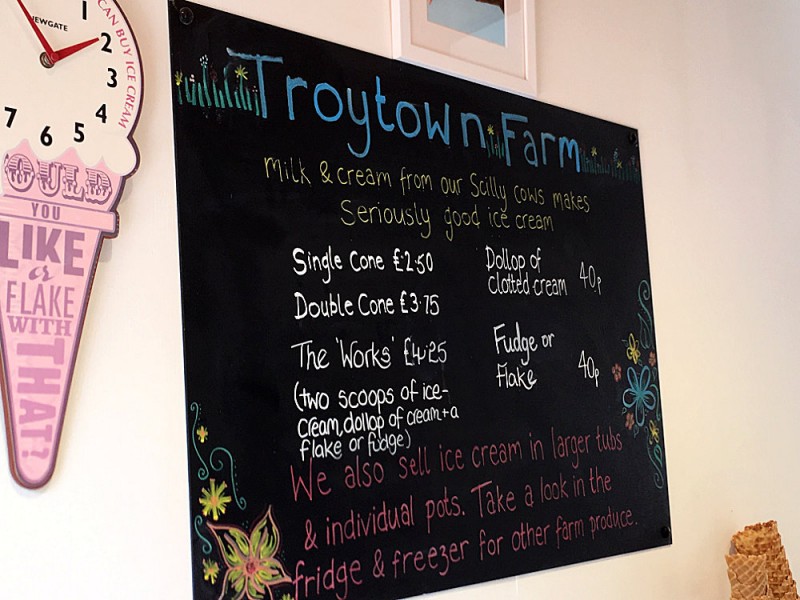 CAN BUY ICE CREAM
NEWGATE
1
2
3
4
5
6
7
OULD
YOU
LIKE
or
FLAKE
WITH
THAT?
Troytown Farm
Milk & cream from our Scilly cows makes
Seriously good ice cream
Single Cone £2·50
Double Cone £3·75
The 'Works' £4·25
(two scoops of ice-
cream, dollop of cream + a
flake or fudge)
Dollop of
Clotted cream 40p
Fudge or
flake 40p
We also sell ice cream in larger tubs
& individual pots. Take a look in the
fridge & freezer for other farm produce.